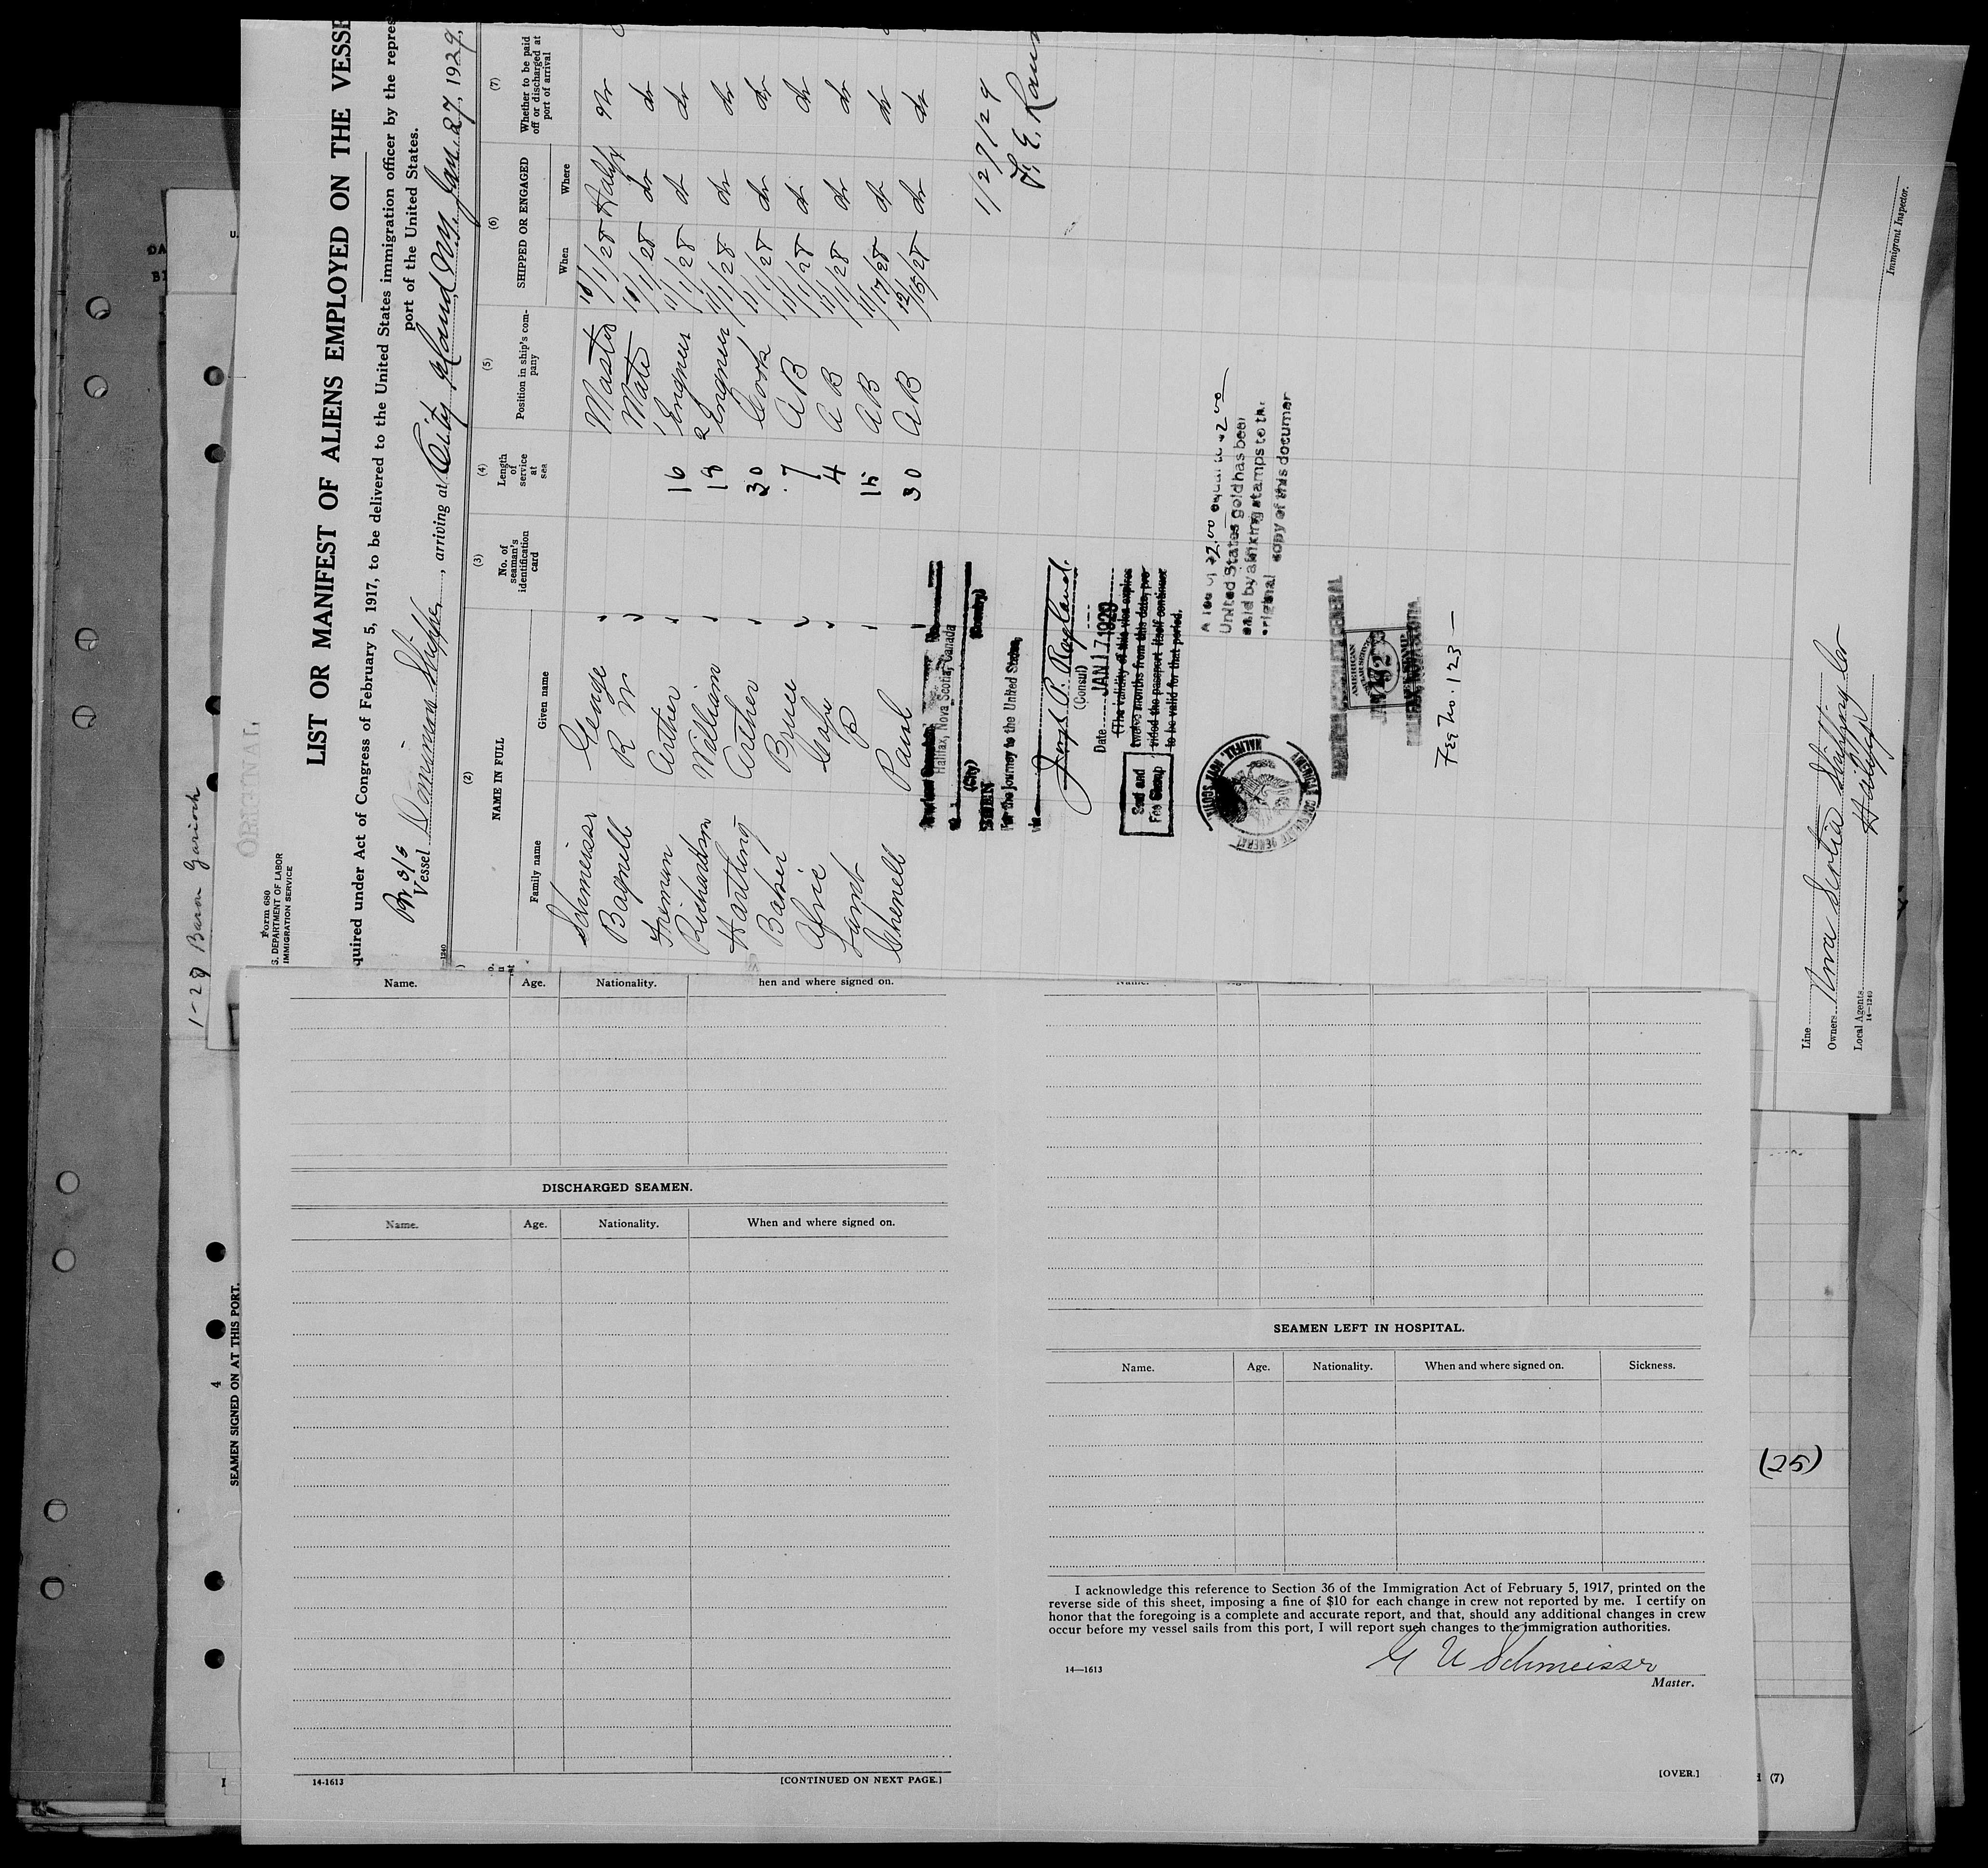 ORIGINAL
Form 680
S. DEPARTMENT OF LABOR
IMMIGRATION SERVICE
LIST OR MANIFEST OF ALIENS EMPLOYED ON THE VESSE
quired under Act of Congress of February 5, 1917, to be delivered to the United States immigration officer by the repres
port of the United States.
Vessel Dominion Shipper, arriving at City Island N.Y. Jan. 27, 1929.
(2) (3) (4) (5) (6) (7)
NAME IN FULL
Family name Given name
No. of seaman's identification card
Length of service at sea
Position in ship's company
SHIPPED OR ENGAGED
When Where
Whether to be paid off or discharged at port of arrival
Schmeisser George Master 10/1/28 Halifx no
Bagnell R W Mate 10/1/28 do do
Freman Arther 16 1 Engneer 11/1/28 do do
Richardson William 18 2 Engneer 11/1/28 do do
Hartling Arther 30 Cook 11/1/28 do do
Baker Bruce 7 AB 11/1/28 do do
4 AB 11/1/28 do do
15 AB 11/17/28 do do
Paul 30 AB 12/15/28 do do
1/27/29
F. E.
Halifax, Nova Scotia, Canada
(City) (Country)
SEEN
For the journey to the United States,
via
(Consul)
Date JAN 17 1929
(The validity of this visa expires
twelve months from this date, pro-
vided the passport itself continues
to be valid for that period.
Seal and
Fee Stamp
A fee of $2.00 equal to $2.00
United States gold has been
paid by affixing stamps to the
original copy of this documen
AMERICAN CONSULATE GENERAL
HALIFAX, NOVA SCOTIA
AMERICAN CONSULATE GENERAL
AMERICAN
HALIFAX, NOVA SCOTIA
Fee No. 123 —
Line
Owners Nova Scotia Shipping Co
Local Agents Halifax
14—1240
Immigrant Inspector.
1-29 Baron Garioch
4
SEAMEN SIGNED ON AT THIS PORT.
Name. Age. Nationality. hen and where signed on.
DISCHARGED SEAMEN.
Name. Age. Nationality. When and where signed on.
14-1613
[CONTINUED ON NEXT PAGE.]
SEAMEN LEFT IN HOSPITAL.
Name. Age. Nationality. When and where signed on. Sickness.
I acknowledge this reference to Section 36 of the Immigration Act of February 5, 1917, printed on the
reverse side of this sheet, imposing a fine of $10 for each change in crew not reported by me. I certify on
honor that the foregoing is a complete and accurate report, and that, should any additional changes in crew
occur before my vessel sails from this port, I will report such changes to the immigration authorities.
G U Schmeisser
14—1613
Master.
[OVER.]
(25)
(7)